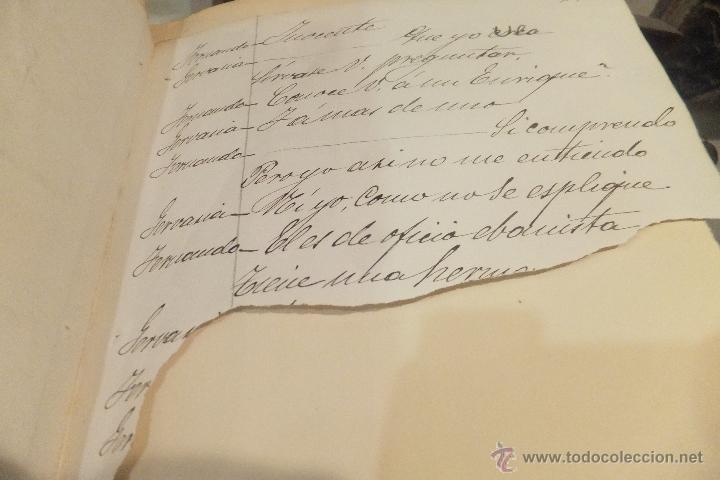 Fernando — Inocente
Gervasia — Que yo sea
Sirvase V. preguntar.
Fernando — Conoce V. á un Enrique?
Gervasia — Á mas de uno
Fernando — Si comprendo
Pero yo asi no me entiendo
Gervasia — Ni yo, como no se esplique
Fernando — El es de oficio ebanista
Tiene una herma
Gerva
Fer
Ger
www.todocoleccion.net